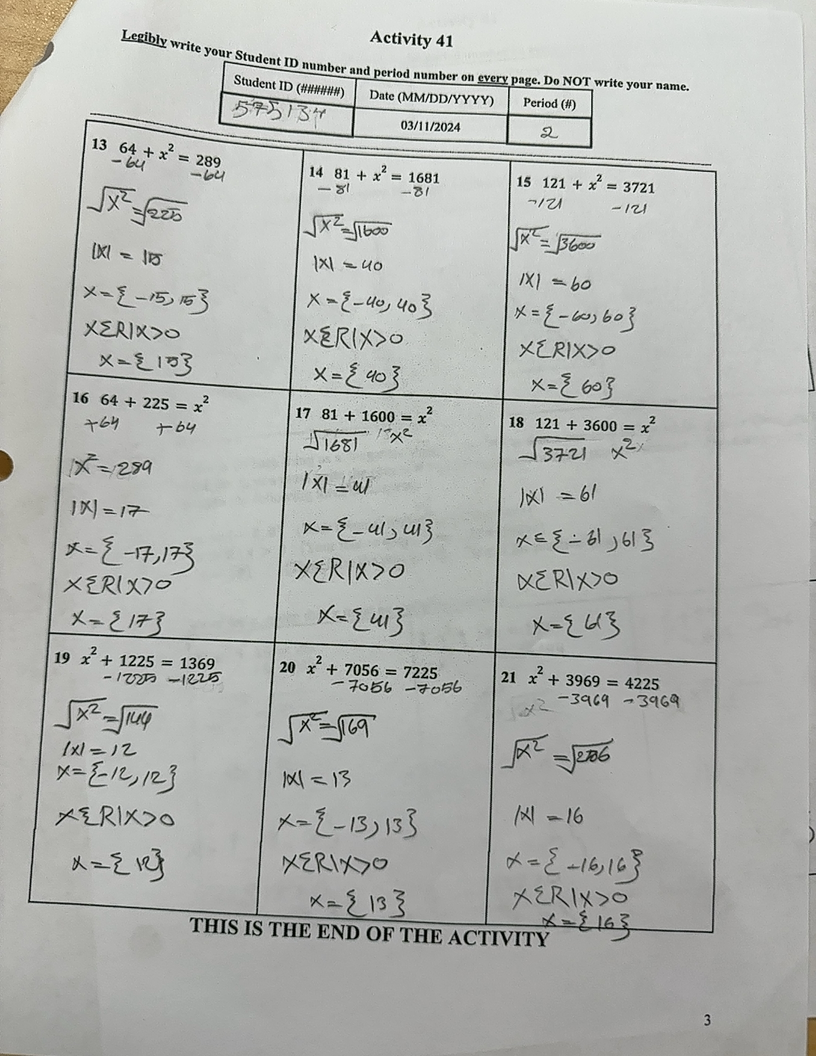 Activity 41
Legibly write your Student ID number and period number on every page. Do NOT write your name.
Student ID (######) Date (MM/DD/YYYY) Period (#)
575134 03/11/2024 2
13 64 + x² = 289
-64 -64
√x² = √225
|x| = 15
x = {-15, 15}
xƐR|x>0
x = {15}
14 81 + x² = 1681
-81 -81
√x² = √1600
|x| = 40
x = {-40, 40}
xƐR|x>0
x = {40}
15 121 + x² = 3721
-121 -121
√x² = √3600
|x| = 60
x = {-60, 60}
xƐR|x>0
x = {60}
16 64 + 225 = x²
+64 +64
x² = 289
|x| = 17
x = {-17, 17}
xƐR|x>0
x = {17}
17 81 + 1600 = x²
√1681 x²
|x| = 41
x = {-41, 41}
xƐR|x>0
x = {41}
18 121 + 3600 = x²
√3721 x²
|x| = 61
x = {-61, 61}
xƐR|x>0
x = {61}
19 x² + 1225 = 1369
-1225 -1225
√x² = √144
|x| = 12
x = {-12, 12}
xƐR|x>0
x = {12}
20 x² + 7056 = 7225
-7056 -7056
√x² = √169
|x| = 13
x = {-13, 13}
xƐR|x>0
x = {13}
21 x² + 3969 = 4225
-3969 -3969
√x² = √256
|x| = 16
x = {-16, 16}
xƐR|x>0
x = {16}
THIS IS THE END OF THE ACTIVITY
3